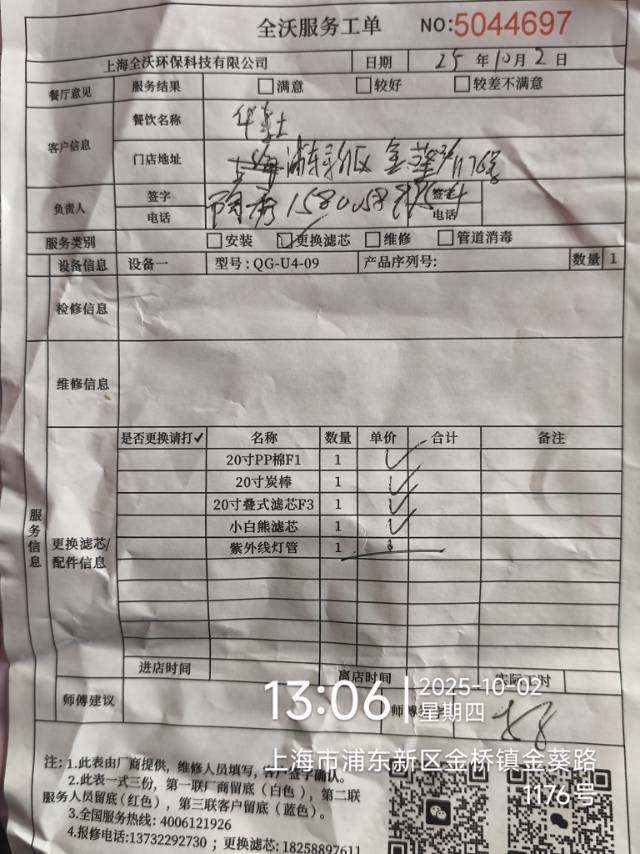 全沃服务工单 NO:5044697
上海全沃环保科技有限公司 日期 25 年 10 月 2 日
餐厅意见 服务结果 满意 较好 较差不满意
客户信息
餐饮名称 华莱士
门店地址 上海浦东新区金葵路1176号
负责人
签字 签字
电话 电话
服务类别 安装 更换滤芯 维修 管道消毒
设备信息 设备一 型号:QG-U4-09 产品序列号: 数量 1
检修信息
维修信息
服务信息
更换滤芯/配件信息
是否更换请打✓ 名称 数量 单价 合计 备注
20寸PP棉F1 1 ✓
20寸炭棒 1 ✓
20寸叠式滤芯F3 1 ✓
小白熊滤芯 1 ✓
紫外线灯管 1
进店时间 离店时间 实际工时
师傅建议 师傅
13:06 2025-10-02
星期四
上海市浦东新区金桥镇金葵路
1176号
注: 1.此表由厂商提供, 维修人员填写, 客户签字确认。
2.此表一式三份, 第一联厂商留底(白色), 第二联
服务人员留底(红色), 第三联客户留底(蓝色)。
3.全国服务热线: 4006121926
4.报修电话:13732292730 ; 更换滤芯: 18258897611